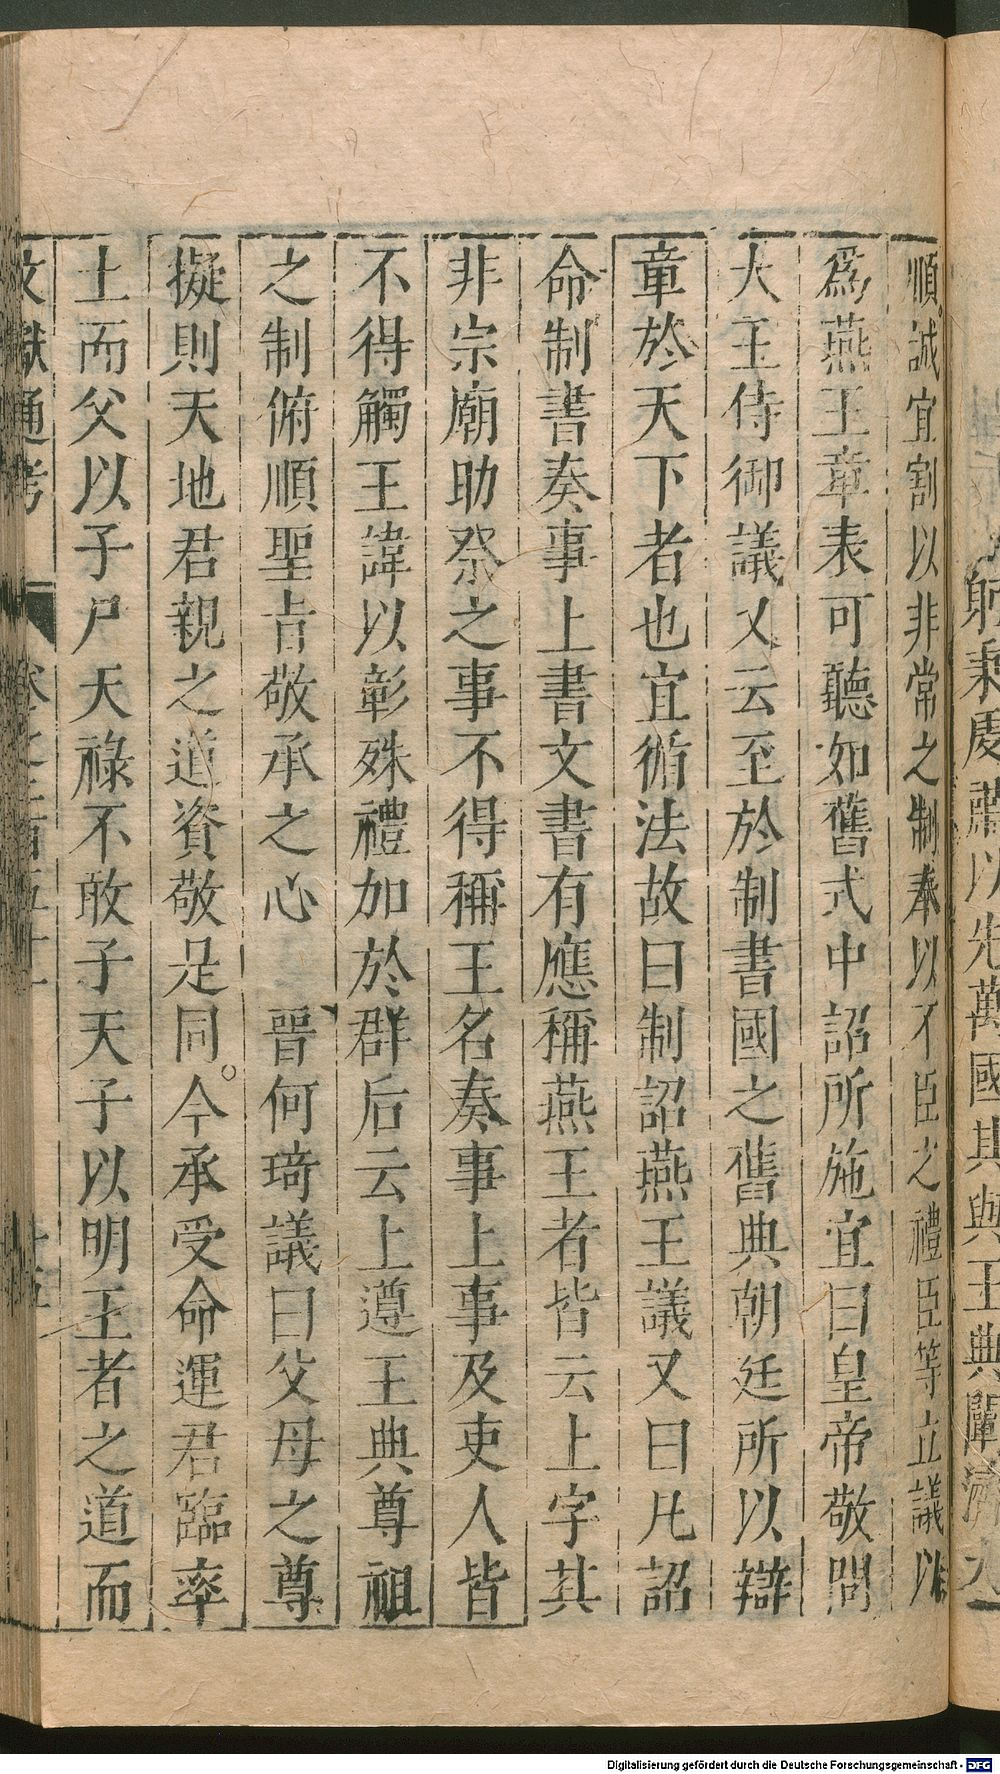 躬秉虔肅以先萬國其與王典闡濟大
順誠宜割以非常之制奉以不臣之禮臣等立議以
爲燕王章表可聽如舊式中詔所施宜曰皇帝敬問
大王侍御議又云至於制書國之舊典朝廷所以辯
章於天下者也宜循法故曰制詔燕王議又曰凡詔
命制書奏事上書文書有應稱燕王者皆云上字其
非宗廟助祭之事不得稱王名奏事上事及吏人皆
不得觸王諱以彰殊禮加於群后云上遵王典尊祖
之制俯順聖旨敬承之心 晉何琦議曰父母之尊
擬則天地君親之道資敬足同今承受命運君臨率
土而父以子尸天祿不敢子天子以明王者之道而
文獻通考
Digitalisierung gefördert durch die Deutsche Forschungsgemeinschaft - DFG